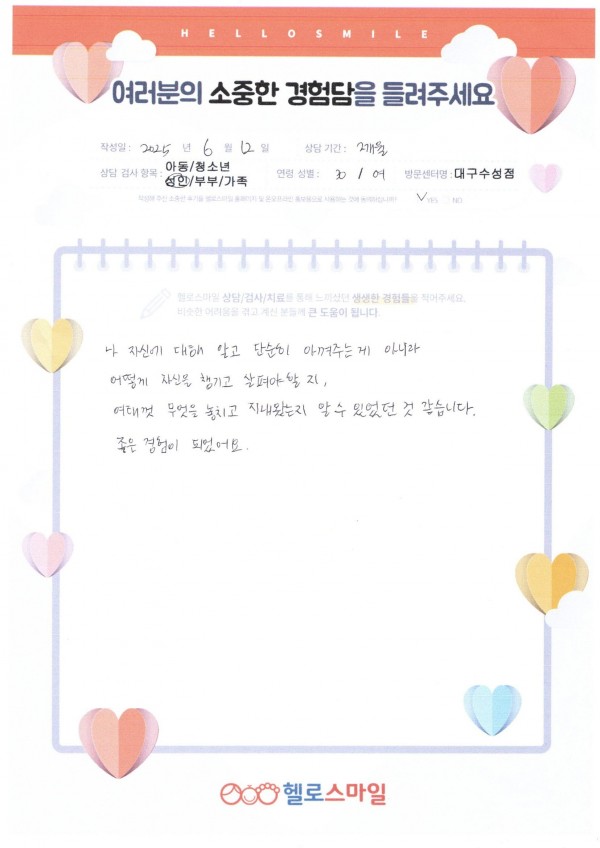 HELLOSMILE
여러분의 소중한 경험담을 들려주세요
작성일 : 2025 년 6 월 12 일 상담 기간 : 2개월
상담 검사 항목 : 아동/청소년 성인/부부/가족 연령 성별 : 30 / 여 방문센터명 : 대구수성점
YES NO
헬로스마일 상담/검사/치료를 통해 느끼셨던 생생한 경험들을 적어주세요.
비슷한 어려움을 겪고 계신 분들께 큰 도움이 됩니다.
나 자신에 대해 알고 단순히 아껴주는게 아니라
어떻게 자신을 챙기고 살펴야할 지,
여태껏 무엇을 놓치고 지내왔는지 알 수 있었던 것 같습니다.
좋은 경험이 되었어요.
헬로스마일